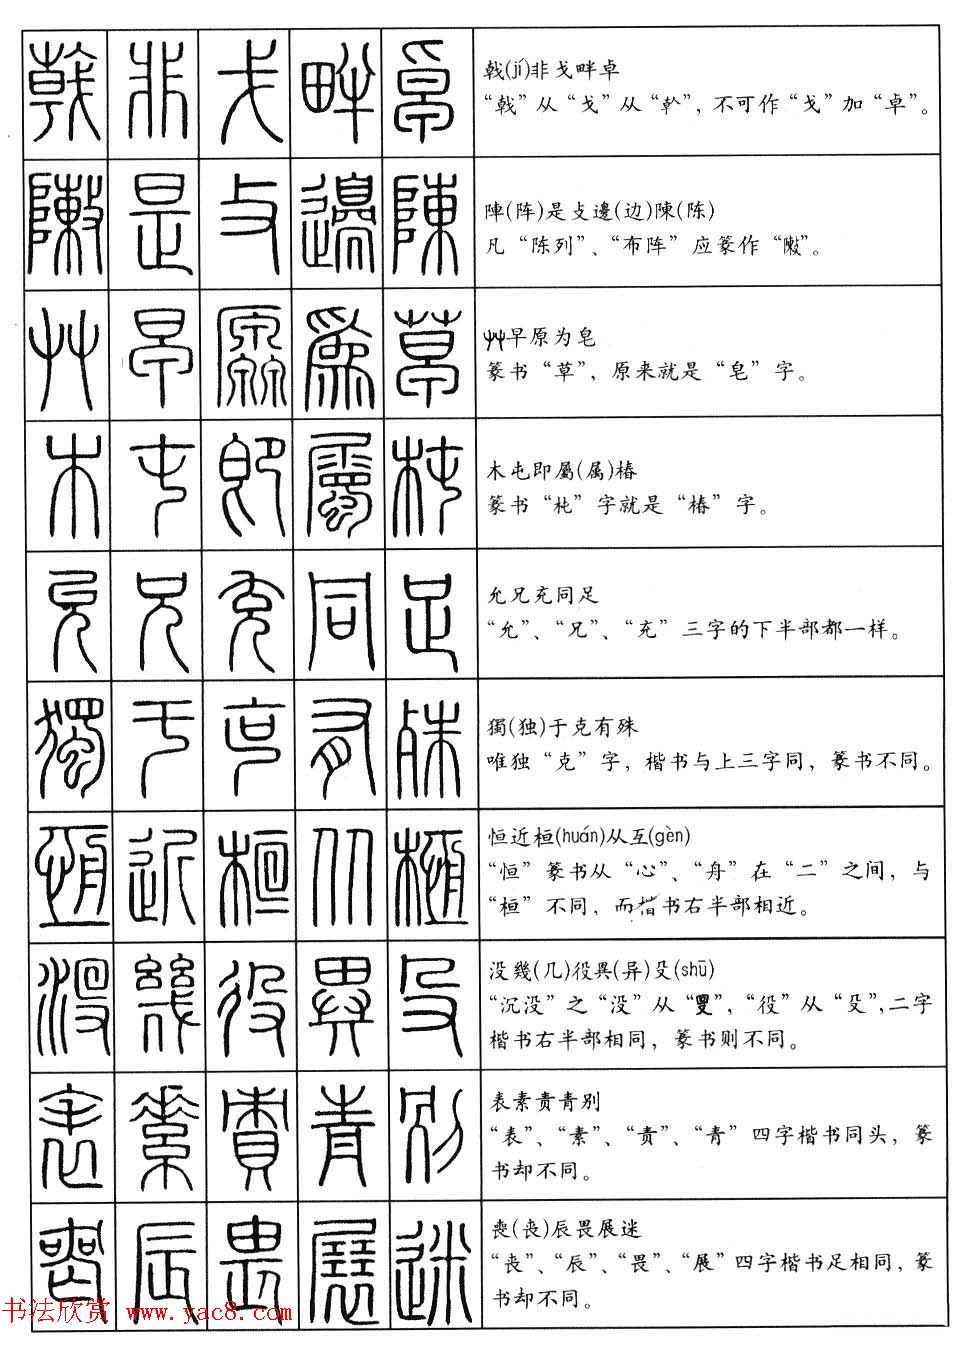 戟(jí)非戈畔卓
“戟”从“戈”从“倝”，不可作“戈”加“卓”。
陣(阵)是攴邊(边)陳(陈)
凡“陈列”、“布阵”应篆作“敶”。
艸早原为皂
篆书“草”，原来就是“皂”字。
木屯即屬(属)椿
篆书“杶”字就是“椿”字。
允兄充同足
“允”、“兄”、“充”三字的下半部都一样。
獨(独)于克有殊
唯独“克”字，楷书与上三字同，篆书不同。
恒近桓(huán)从亙(gèn)
“恒”篆书从“心”、“舟”在“二”之间，与
“桓”不同，而楷书右半部相近。
没幾(几)役異(异)殳(shū)
“沉没”之“没”从“𠬛”，“役”从“殳”，二字
楷书右半部相同，篆书则不同。
表素责青别
“表”、“素”、“责”、“青”四字楷书同头，篆
书却不同。
喪(丧)辰畏展迷
“丧”、“辰”、“畏”、“展”四字楷书足相同，篆
书却不同。
书法欣赏 www.yac8.com